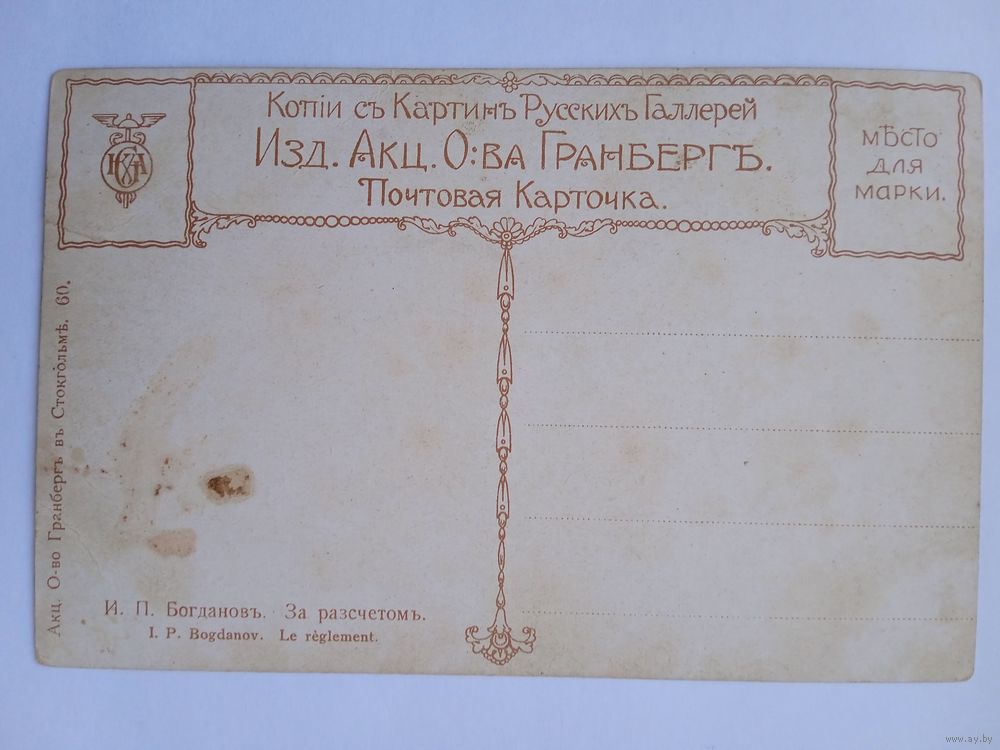 Копіи съ Картинъ Русскихъ Галлерей
Изд. Акц. О:ва Гранбергъ.
Почтовая Карточка.
Мѣсто
для
марки.
Акц. О-во Гранбергъ въ Стокгольмѣ. 60.
И. П. Богдановъ. За разсчетомъ.
I. P. Bogdanov. Le règlement.
www.ay.by